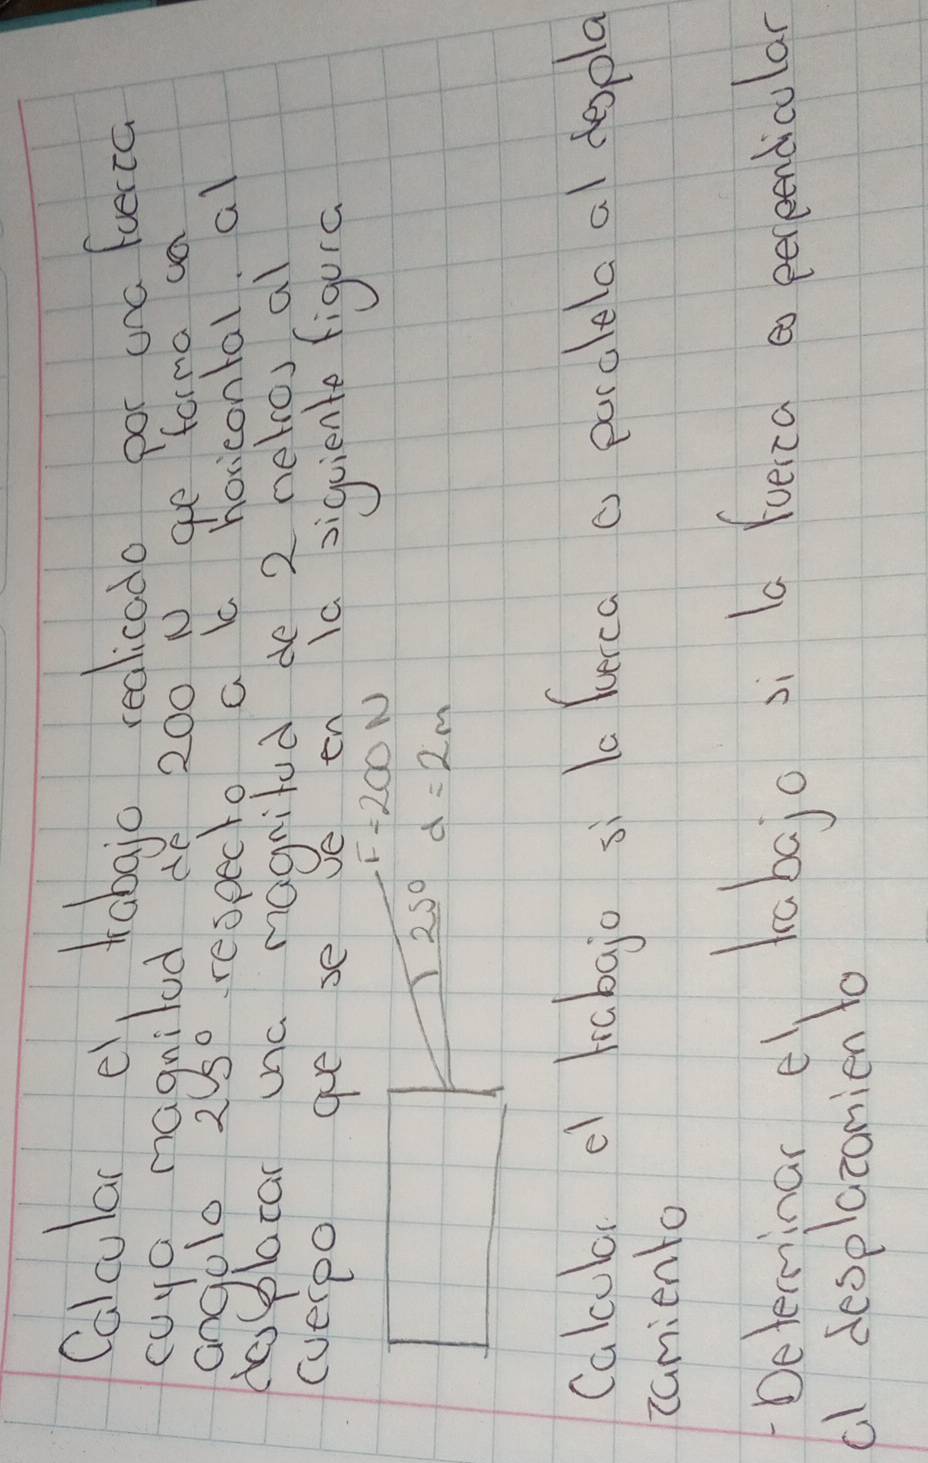 Calcular el trabajo realicado por una fuerza
cuya magnitud de 200 N que forma un
angulo 25° respecto a la horicontal. al
desplazar una magnitud de 2 metros al
cuerpo que se ve en la siguiente figura
F=200N
25° d=2m
Calcular el trabajo si la fuerca es paralela al despla
zamiento
-Determinar el trabajo si la fuerza es perpendicular
al desplazamiento